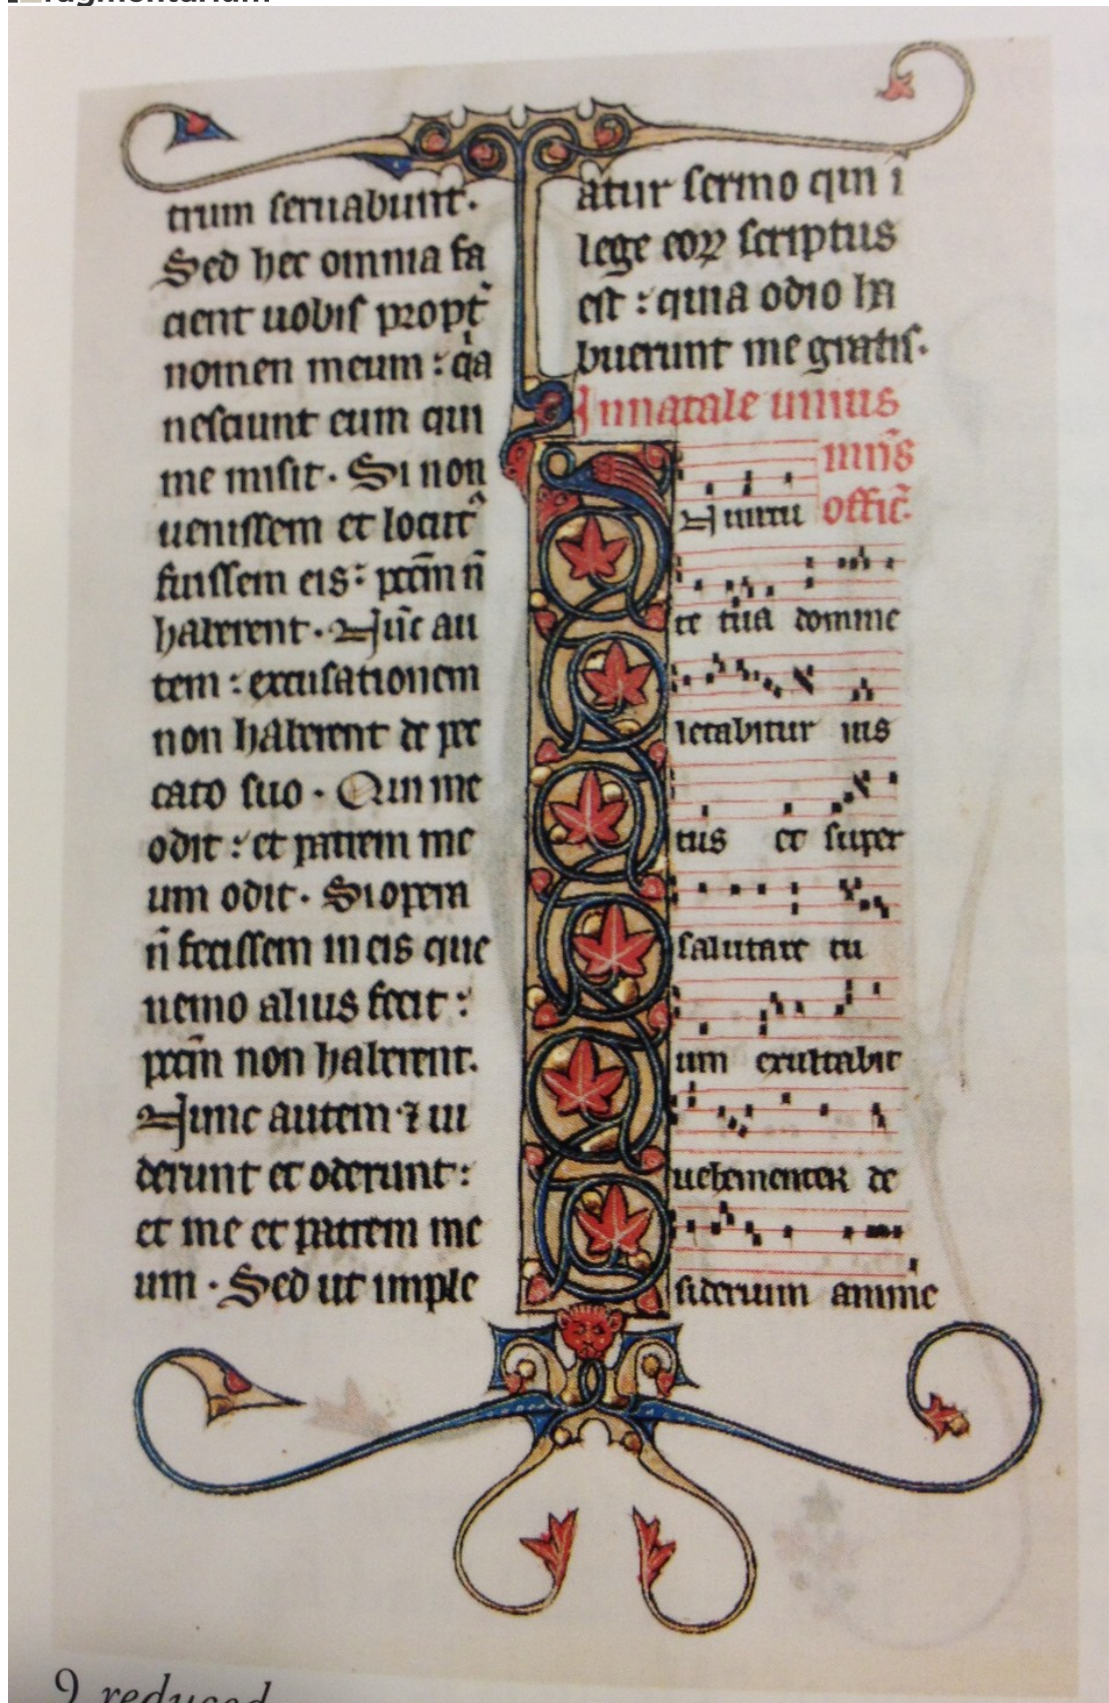 fragmentarium
trum seruabunt.
Sed hec omnia fa
cient uobis propt̉
nomen meum : qͥa
nesciunt eum qui
me misit. Si non
uenissem et locut᾿
fuissem eis: pccm̄ n̄
haberent. Nūc au
tem : excusationem
non haberent de pec
cato suo. Qui me
odit : et patrem me
um odit. Si opera
n̄ fecissem in eis que
nemo alius fecit :
pccm̄ non haberent.
Nunc autem ⁊ ui
derunt et oderunt :
et me et patrem me
um. Sed ut imple
atur sermo qui ī
lege eoꝝ scriptus
est : quia odio ha
buerunt me gratis.
In natale unius
mr̄is
offic̄.
In uirtu
te tua domine
letabitur ius
tus et super
salutare tu
um exultabit
uehementer de
siderium anime
9 reduced